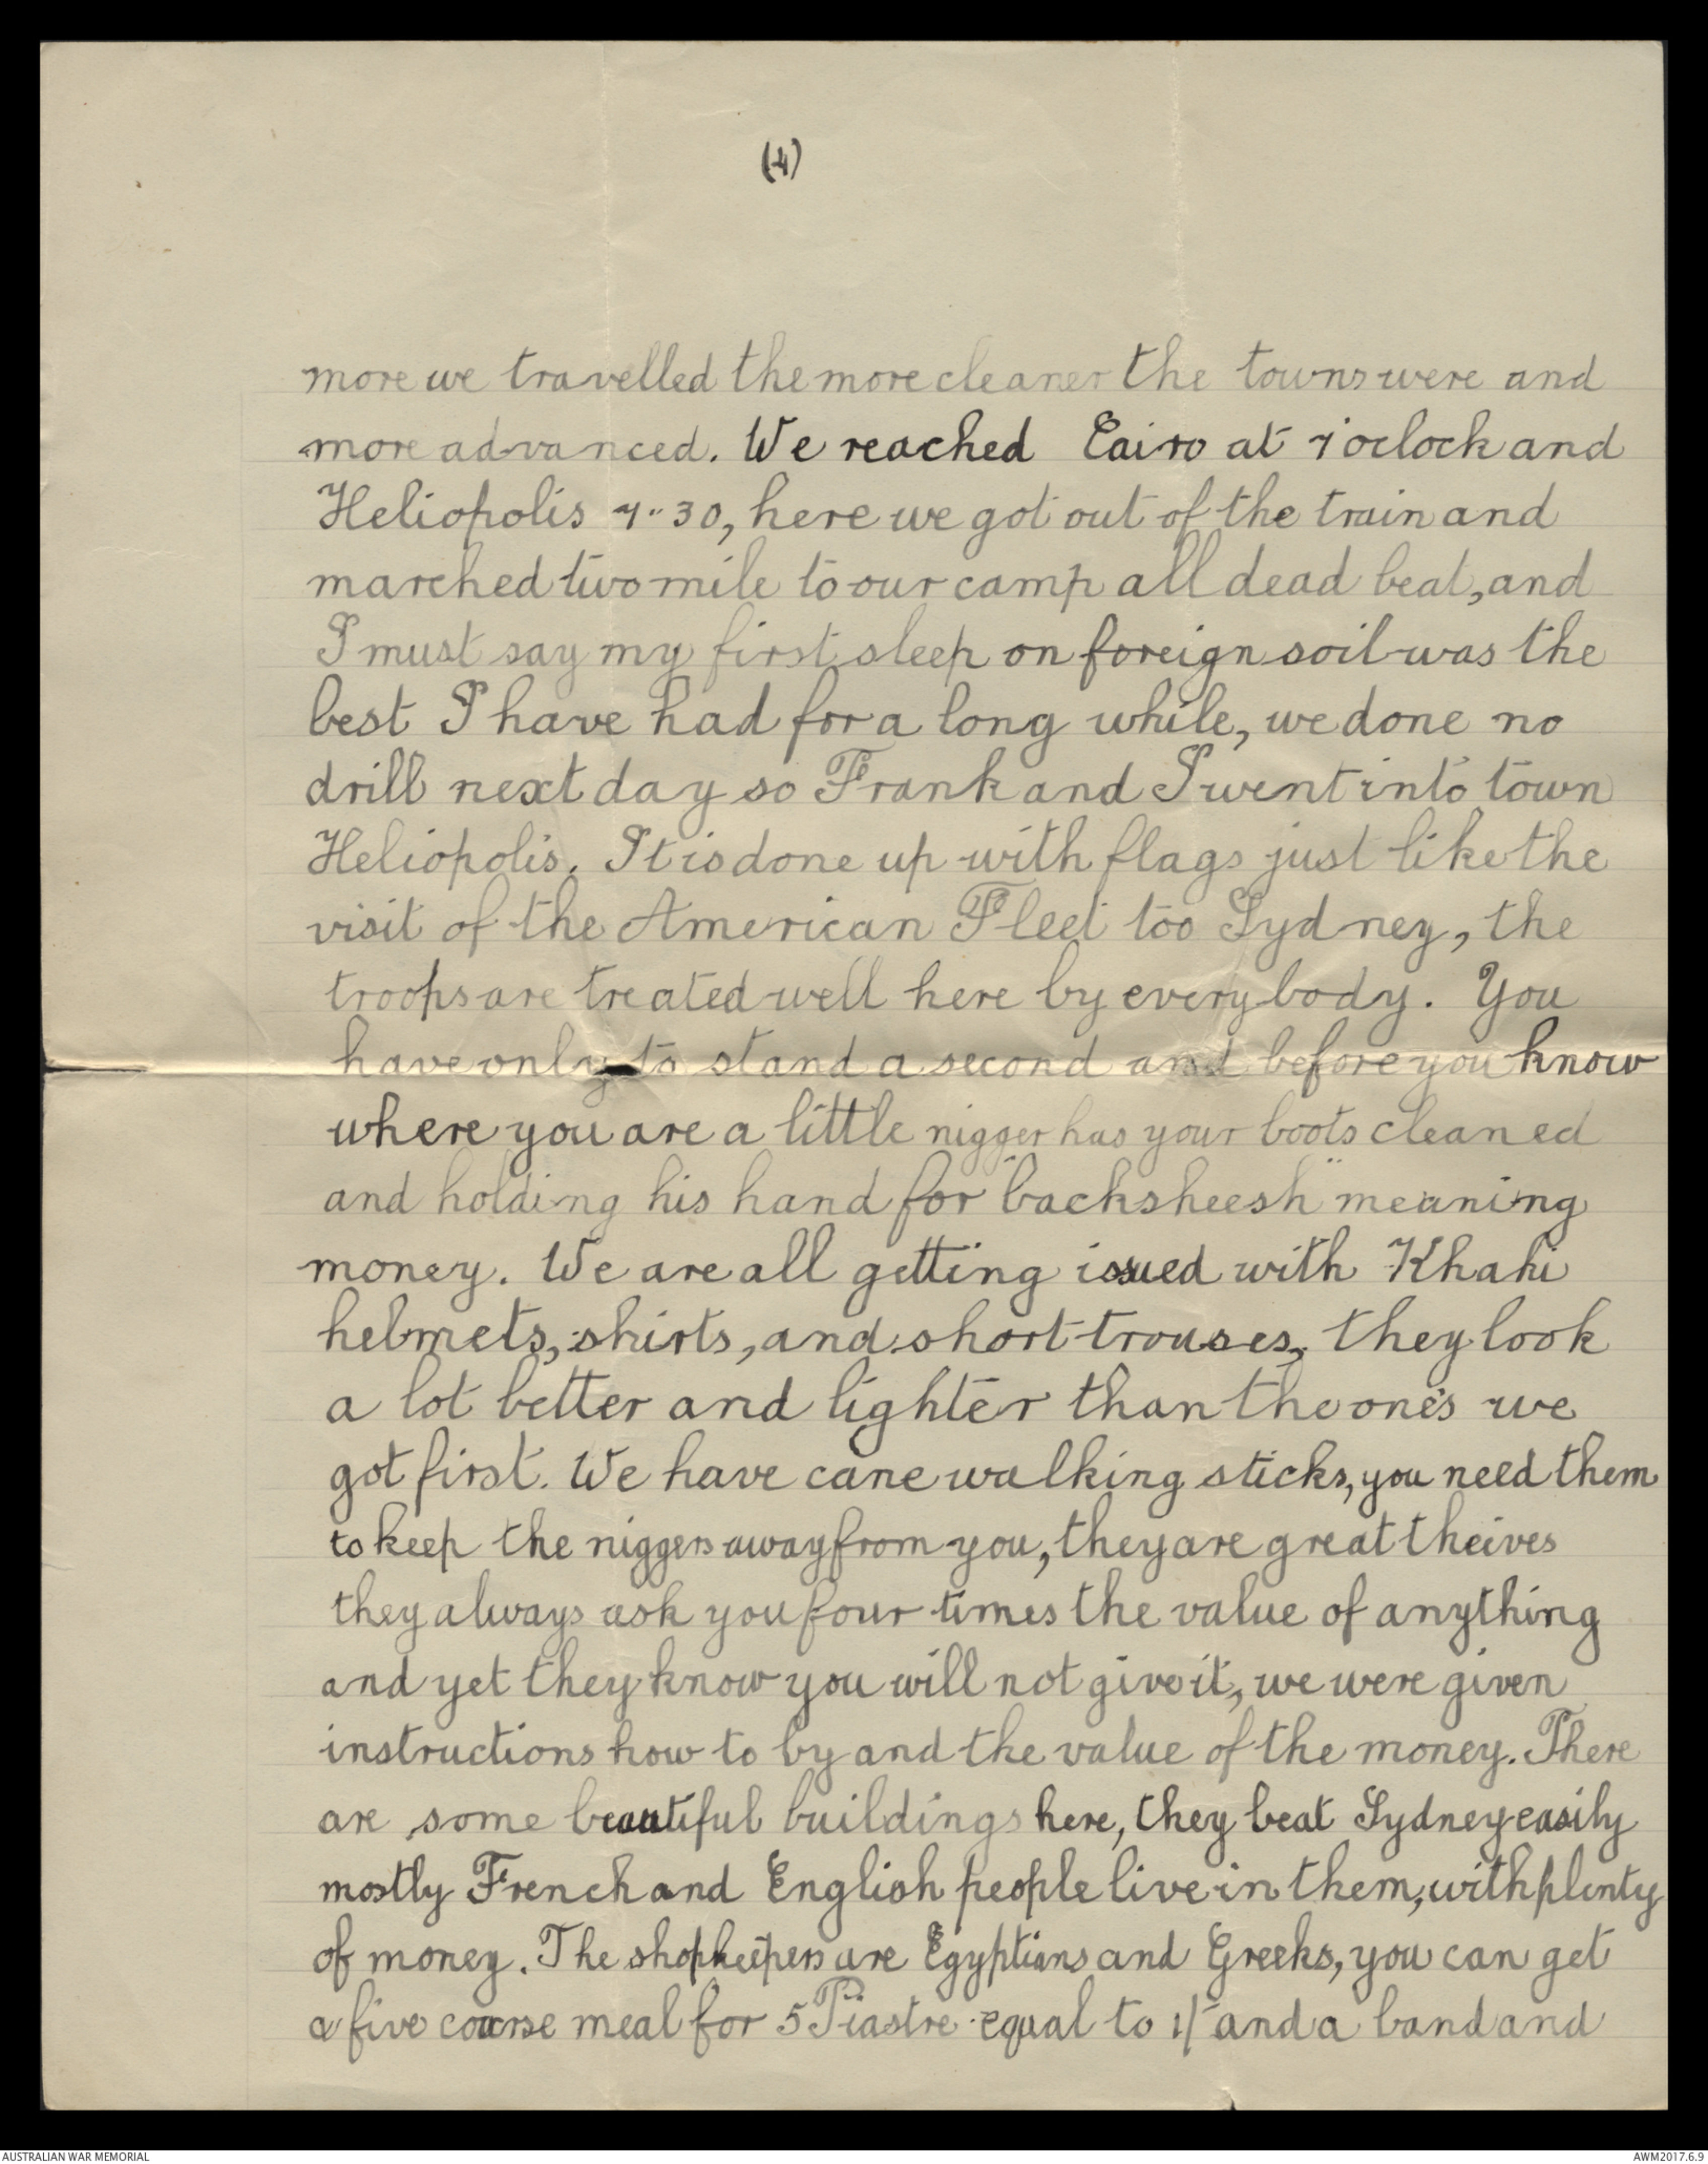 (4)
more we travelled the more cleaner the towns were and
more advanced. We reached Cairo at 7 oclock and
Heliopolis 7"30, here we got out of the train and
marched two mile to our camp all dead beat, and
I must say my first sleep on foreign soil was the
best I have had for a long while, we done no
drill next day so Frank and I went into town
Heliopolis. It is done up with flags just like the
visit of the American Fleet too Sydney, the
troops are treated well here by everybody. You
have only to stand a second and before you know
where you are a little nigger has your boots cleaned
and holding his hand for "backsheesh" meaning
money. We are all getting issued with Khaki
helmets, shirts, and short trouses, they look
a lot better and lighter than the one's we
got first. We have cane walking sticks, you need them
to keep the niggers away from you, they are great theives
they always ask you four times the value of anything
and yet they know you will not give it, we were given
instructions how to by and the value of the money. There
are some beautiful buildings here, they beat Sydney easily
mostly French and English people live in them, with plenty
of money. The shopkeepers are Egyptians and Greeks, you can get
a five course meal for 5 Piastre equal to 1/- and a band and
AUSTRALIAN WAR MEMORIAL
AWM2017.6.9